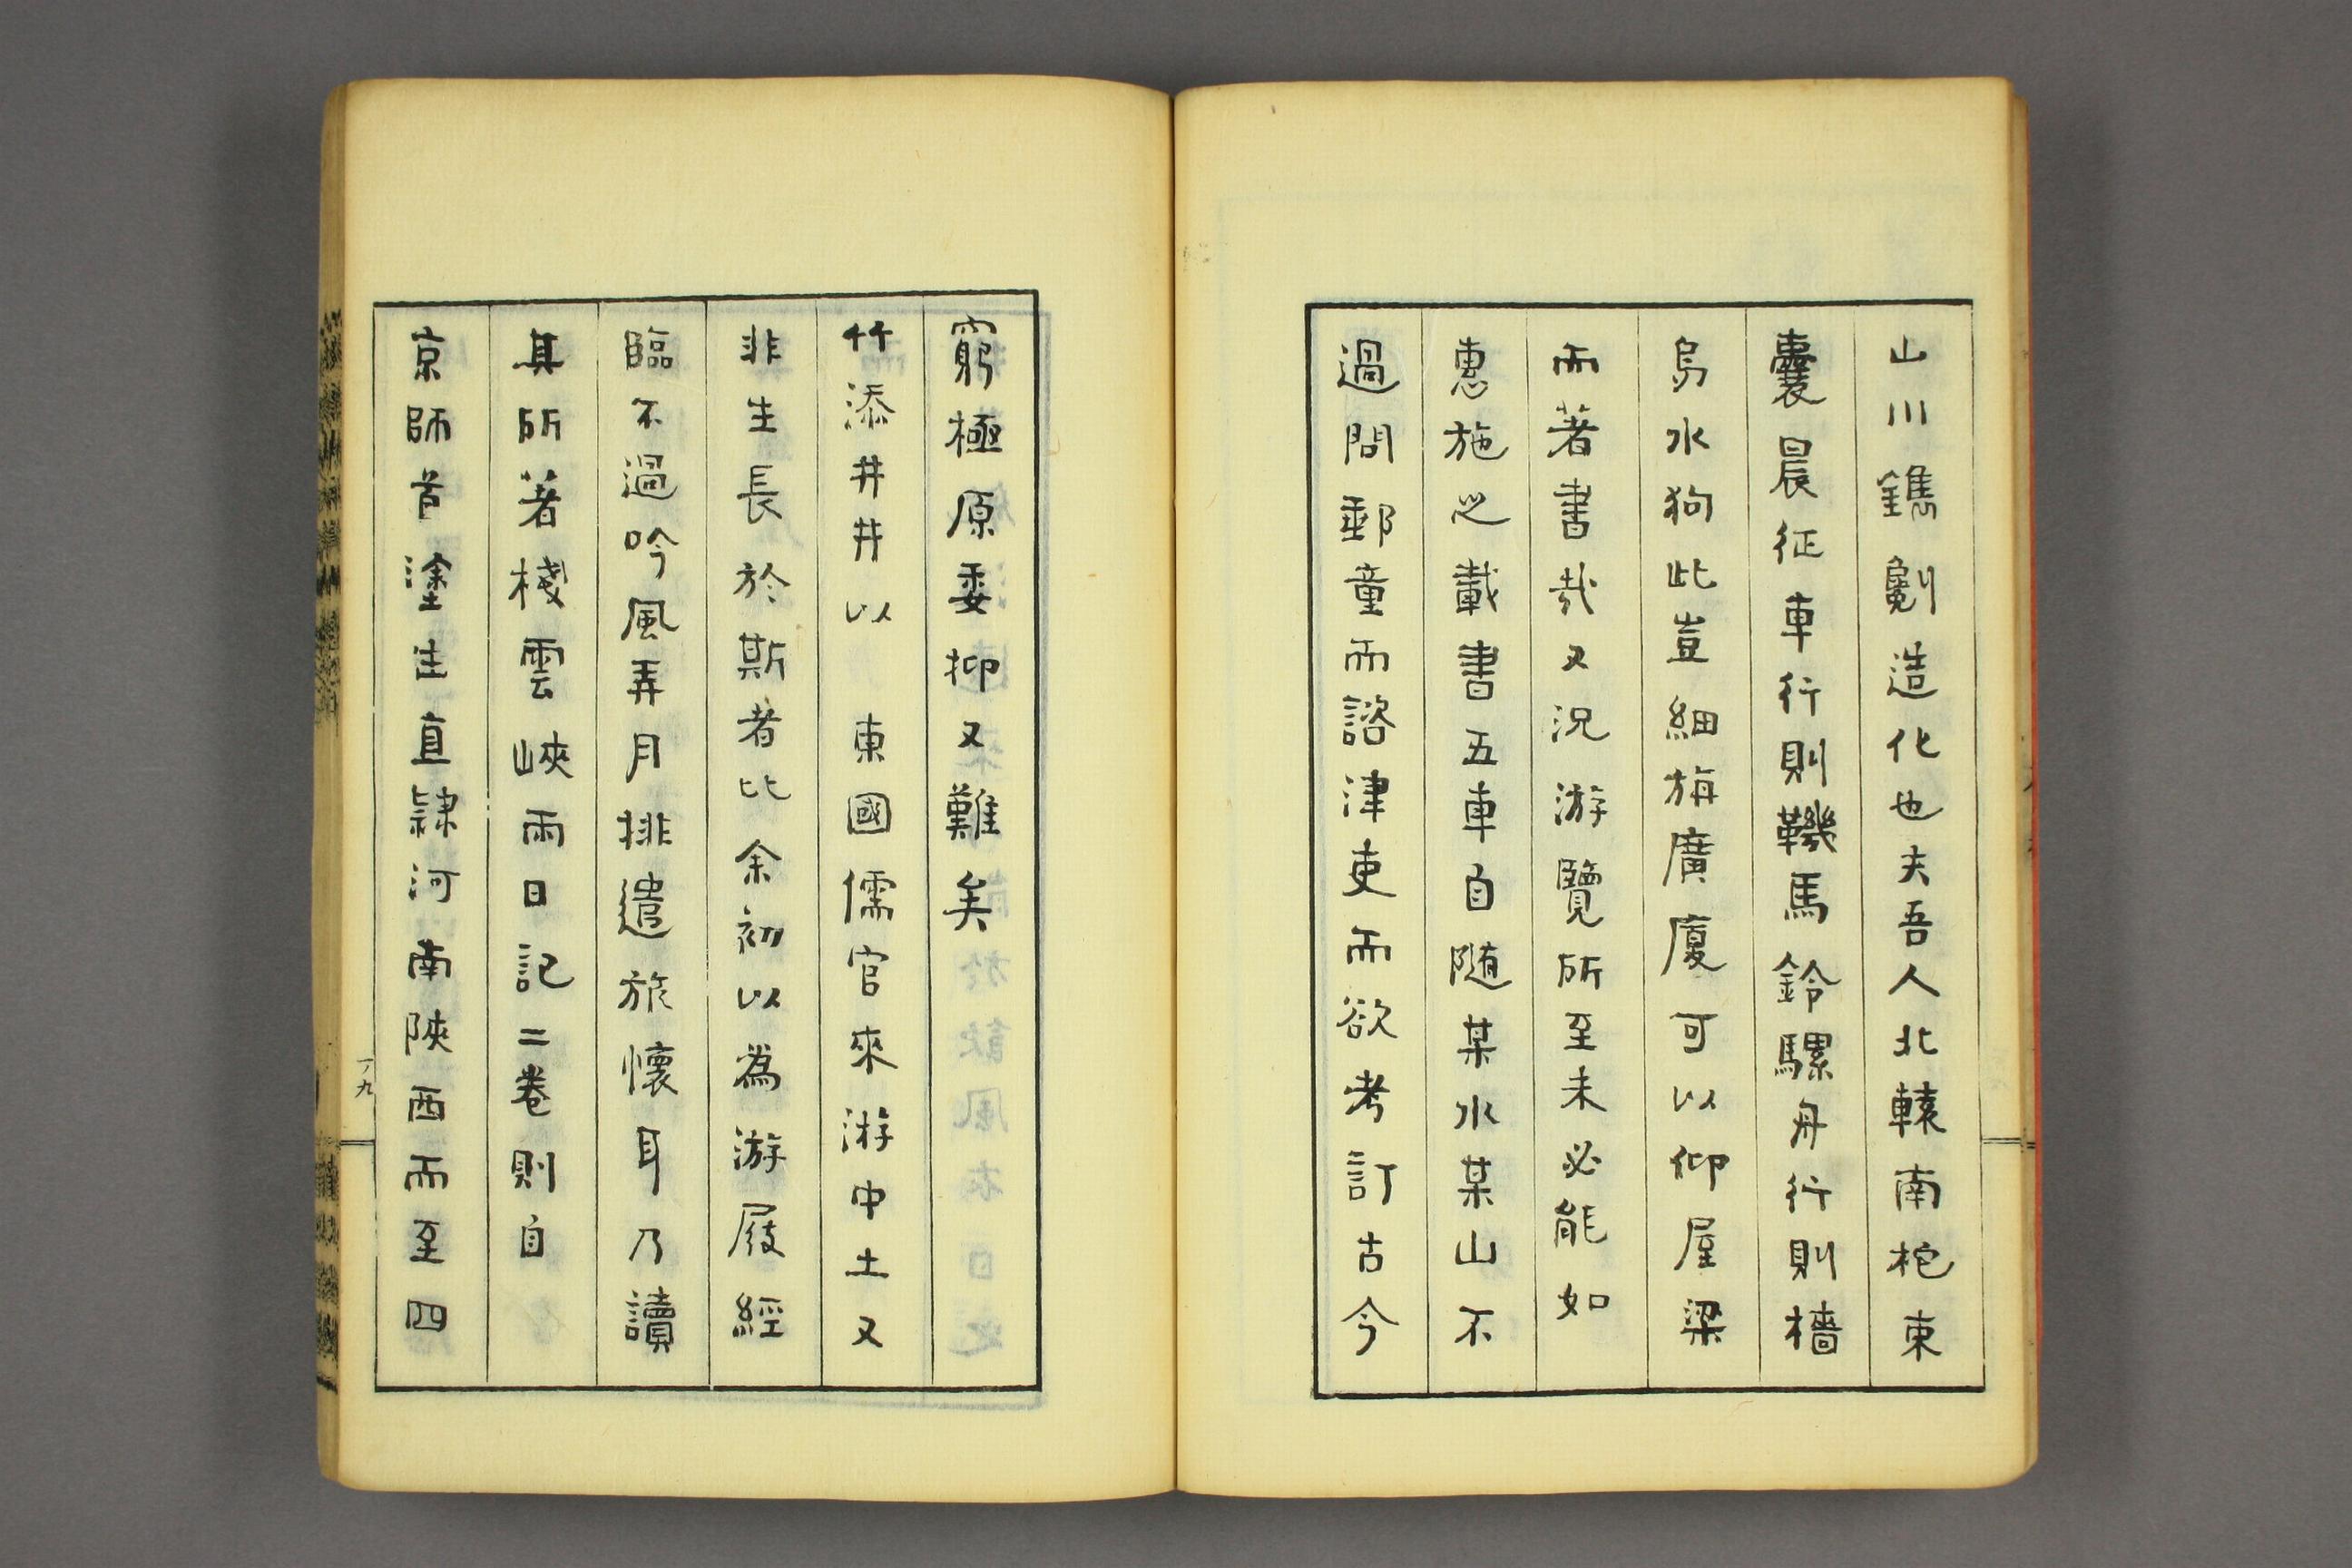 山川鐫劖造化也夫吾人北轅南柁東
囊晨征車行則鞿馬鈴騾舟行則檣
烏水狗此豈細旃廣廈可以仰屋梁
而著書哉又況游覽所至未必能如
惠施之載書五車自隨某水某山不
過問郵童而諮津吏而欲考訂古今
窮極原委抑又難矣
竹添井井以 東國儒官來游中土又
非生長於斯者比余初以為游屐經
臨不過吟風弄月排遣旅懷耳乃讀
其所著棧雲峽雨日記二卷則自
京師首塗生直隸河南陝西而至四